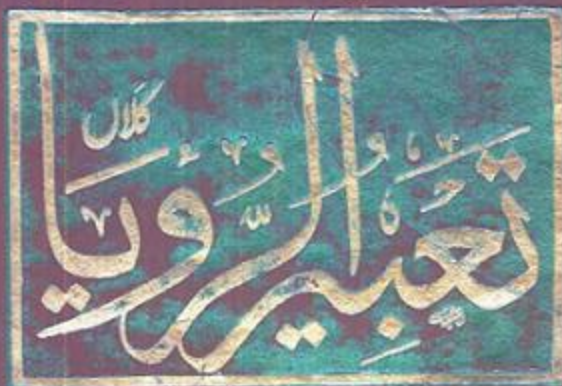 تعبیر الرؤیا
کلاں